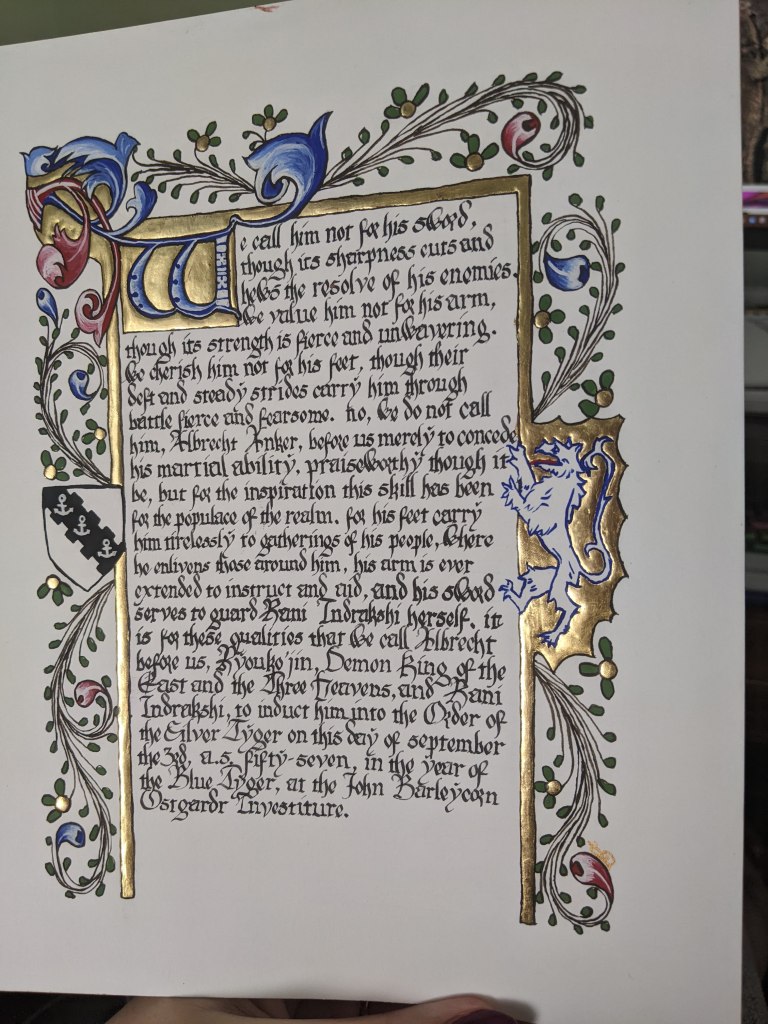 We call him not for his sword,
though its sharpness cuts and
hews the resolve of his enemies.
We value him not for his arm,
though its strength is fierce and unwavering.
We cherish him not for his feet, though their
deft and steady strides carry him through
battle fierce and fearsome. No, we do not call
him, Albrecht Anker, before us merely to concede
his martial ability, praiseworthy though it
be, but for the inspiration this skill has been
for the populace of the realm. for his feet carry
him tirelessly to gatherings of his people, where
he enlivens those around him, his arm is ever
extended to instruct and aid, and his sword
serves to guard Rani Indrakshi herself. it
is for these qualities that we call Albrecht
before us, Ryouko'jin, Demon King of the
East and the Three Heavens, and Rani
Indrakshi, to induct him into the Order of
the Silver Tyger on this day of september
the 3rd, a.s. fifty-seven, in the year of
the Blue Tyger, at the John Barleycorn
Ostgardr Investiture.